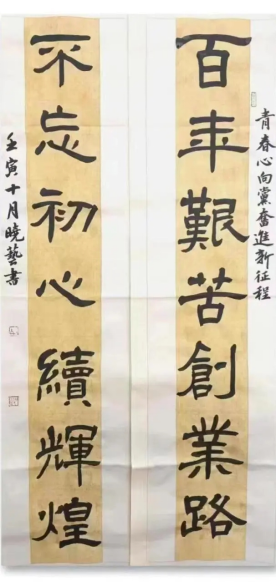 青春心向黨奮進新征程
百年艱苦創業路
不忘初心續輝煌
壬寅十月曉藝書